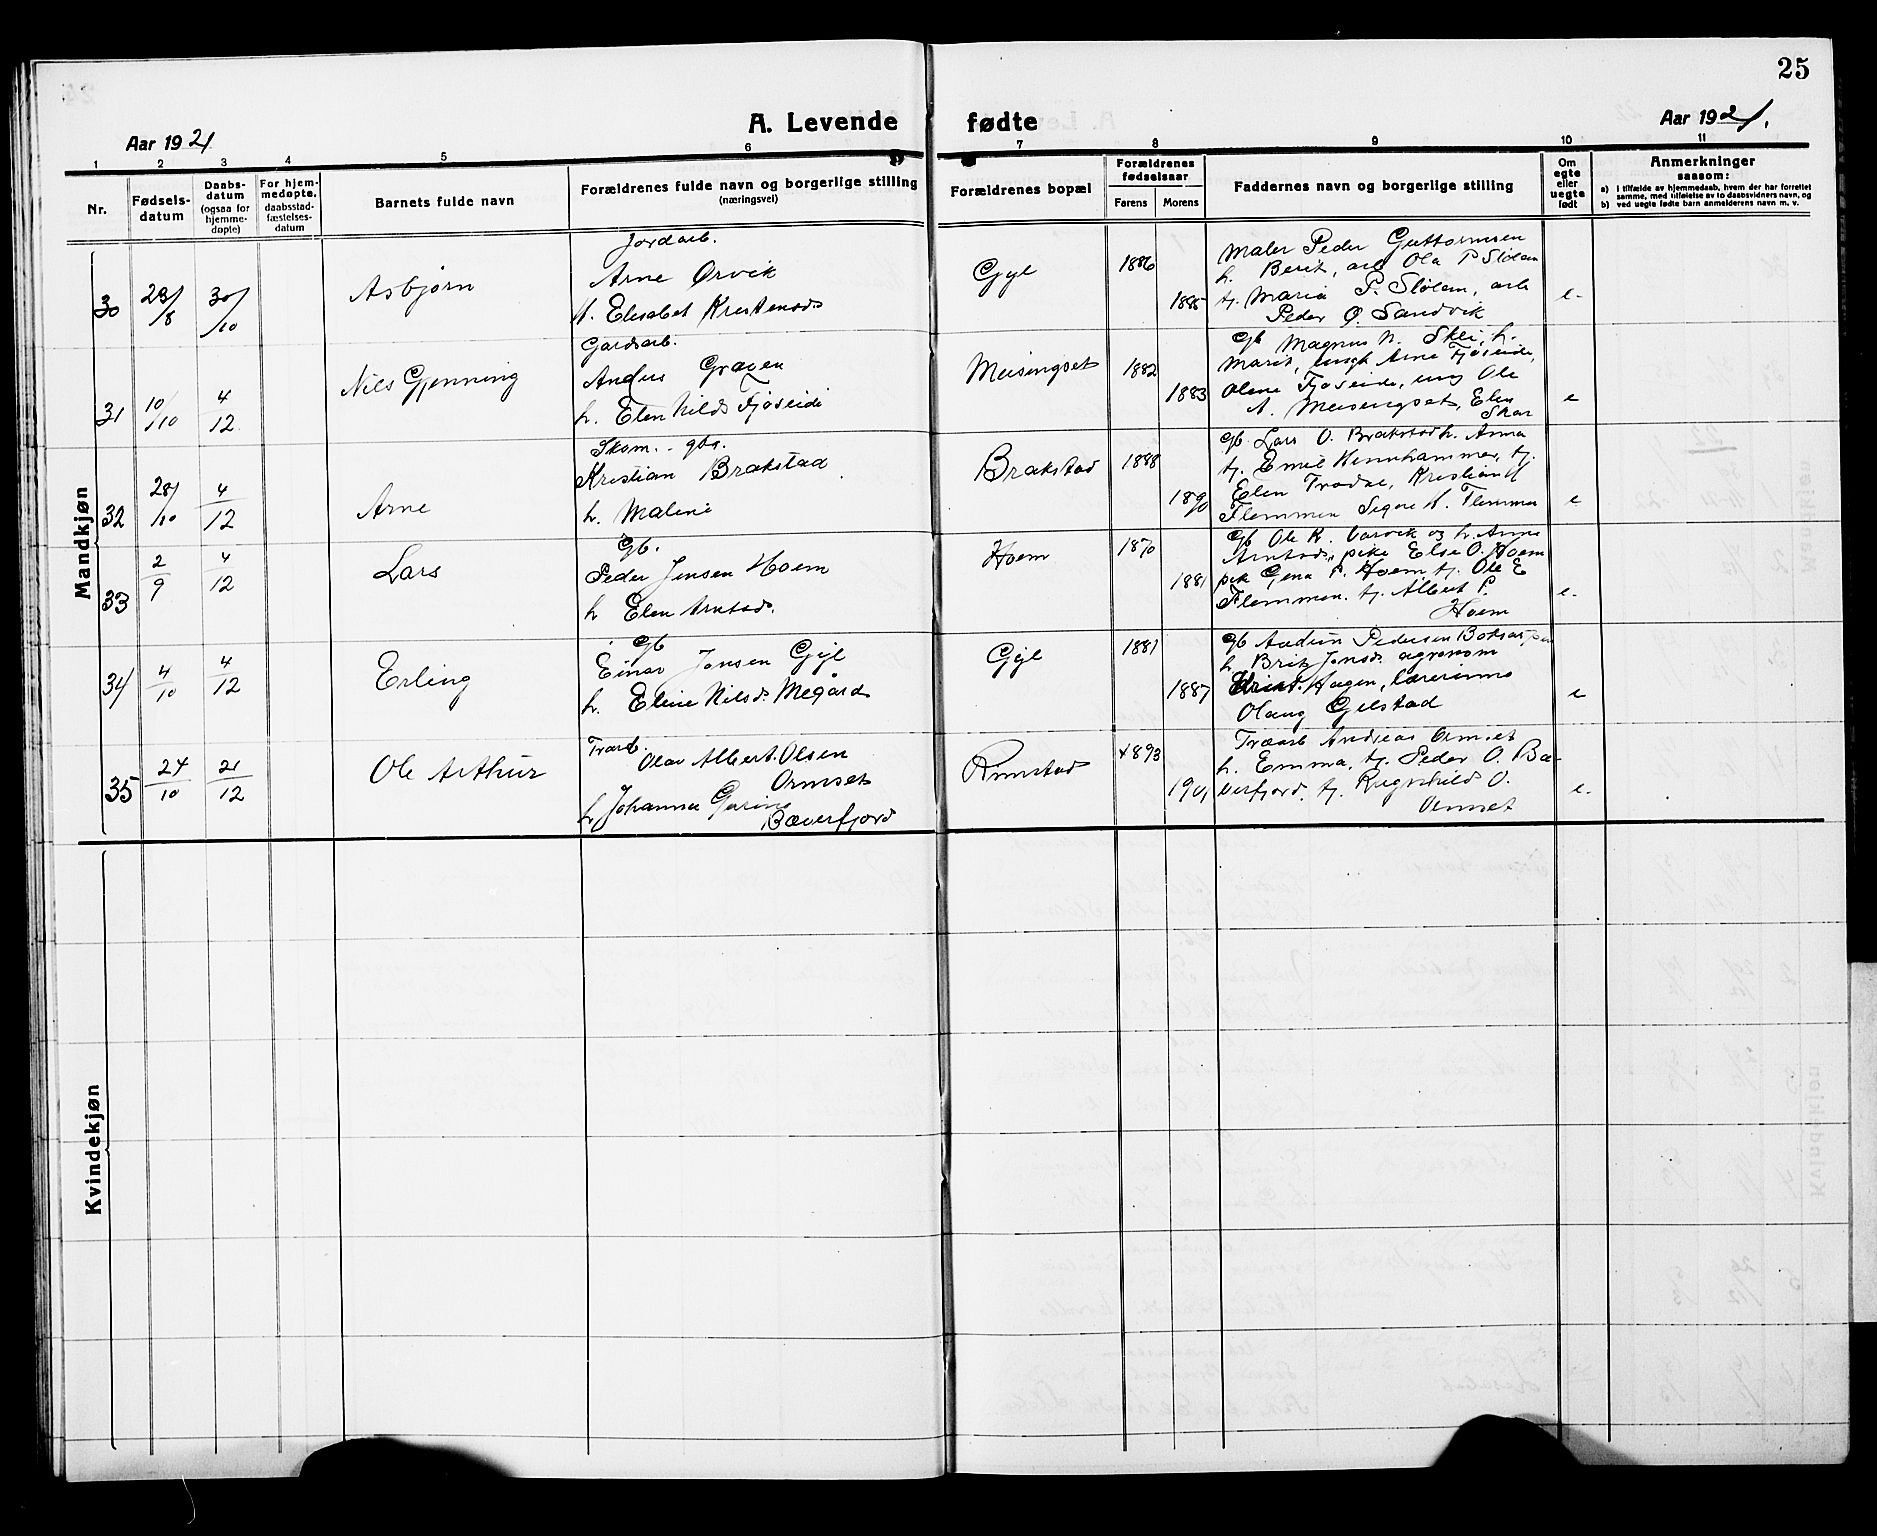 25
A. Levende fødte
Aar 1921
Aar 1921.
1 2 3 4 5 6 7 8 9 10 11
Nr.
Fødsels-
datum
Daabs-
datum
(ogsaa for
hjemme-
døpte)
For hjem-
medøpte.
daabsstad-
fæstelses-
datum
Barnets fulde navn
Forældrenes fulde navn og borgerlige stilling
(næringsvei)
Forældrenes bopæl
Forældrenes
fødselsaar
Farens
Morens
Faddernes navn og borgerlige stilling
Om
egte
eller
uegte
født
Anmerkninger
saasom:
a) i tilfælde av hjemmedaab, hvem der har forrettet
samme, med tilføielse av to daabsvidners navn, og
b) ved uegte fødte barn anmelderens navn m. v.
Mandkjøn
30
29/8
30/10
Asbjørn
Jordarb.
Arne Ørvik
h. Elisabet Kristensd.
Gyl
1886
1885
Maler Peder Guttormsen
h. Berit, arb Ola P Stølen
tj. Maria P. Stølen, arb
Peder Ø. Sandvik
e.
31
10/10
4/12
Nils Gjenning
Gardarb.
Anders Graven
h. Elen Nilsd Fjøseide
Meisingset
1882
1883
Gb Magnus N. Skei, h.
Marit, ungk Arne Fjøseide,
Olene Fjøseide, ung Ole
A. Meisingset, Elen
Skar
e
32
28/10
4/12
Arne
Skom. - gbr.
Kristian Brakstad
h. Malene
Brakstad
1888
1890
Gb. Lars O. Brakstad h. Anna
tj. Emil Hennhammer, tj.
Elen Trodal, Kristian
Flemmen Signe H. Flemmen
e
33
2/9
4/12
Lars
Gb.
Peder Jensen Hoem
h Elen Arntsd.
Hoem
1870
1881
Gb Ole K. Varvik og h. Anne
Arntsd., pike Else O. Hoem
pik Gena P. Hoem tj. Ole E
Flemmen. tj. Albert P.
Hoem
e.
34
4/10
4/12
Erling
Gb
Einar Jonsen Gyl
h. Eline Nilsd. Megård
Gyl
1881
1887
Gb Audun Pedersen
h. Brit Jonsd. agronom
Hagen, lærerinne
Olaug Gjelstad
e
35
24/10
21/12
Ole Arthur
Træarb.
Olav Albert Olsen
Ormset
h Johanna Gurine
Bæverfjord
Rimstad
1893
1901
Træarb Andreas Ormset
h. Emma, tj. Peder O. Bæ-
verfjord, tj. Ragnhild O.
Ormset
e.
Kvindekjøn